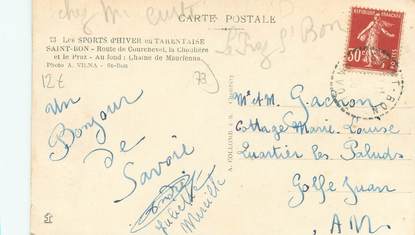 chez Mr
CARTE POSTALE
Le Praz St Bon
73 Les SPORTS d'HIVER en TARENTAISE
SAINT-BON - Route de Courchevel, la Choulière
et le Praz - Au fond : Chaîne de Maurienne.
Photo A. VILNA - St-Bon
12€
73
Un
Bonjour
de
Savoie
André
Juliette
Mireille
A. COLLOMB
50c
M. et M. Gachon
Cottage Marie-Louise
Quartier les Paluds
Golfe Juan
A M